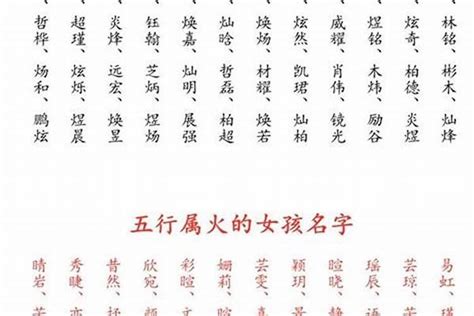 、林铭、彬木、灿烽
、炫奇、柏德、炎煜
、煜铭、木炜、励谷
、威耀、肖伟、镜光
、炫然、凯珺、灿柏
、焕炀、材耀、焕若
、灿晗、哲磊、柏超
、焕嘉、灿明、展强
、钰翰、芝炳、煜炀
、炎烽、远宏、焕昱
、超瑾、炫烁、煜晨
、哲桦、炀和、鹏炫
五行属火的女孩名字
易虹、瑾
芸琼、芸
瑶辰、语
暄晓、静
颖玥、景
芸雯、晴
姗莉、
彩暄、文
欣宛、颖
昔然、
秀睫、亦
晴岩、芸